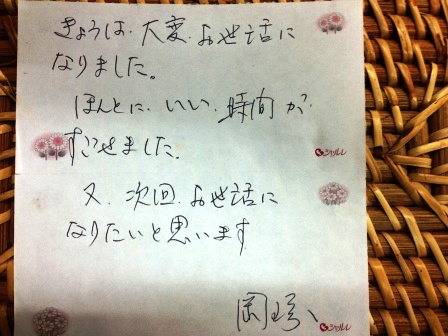 きょうは、大変、お世話に
なりました。
ほんとに、いい、時間が、
すごせました。
シャルレ
又、次回、お世話に
なりたいと思います
シャルレ